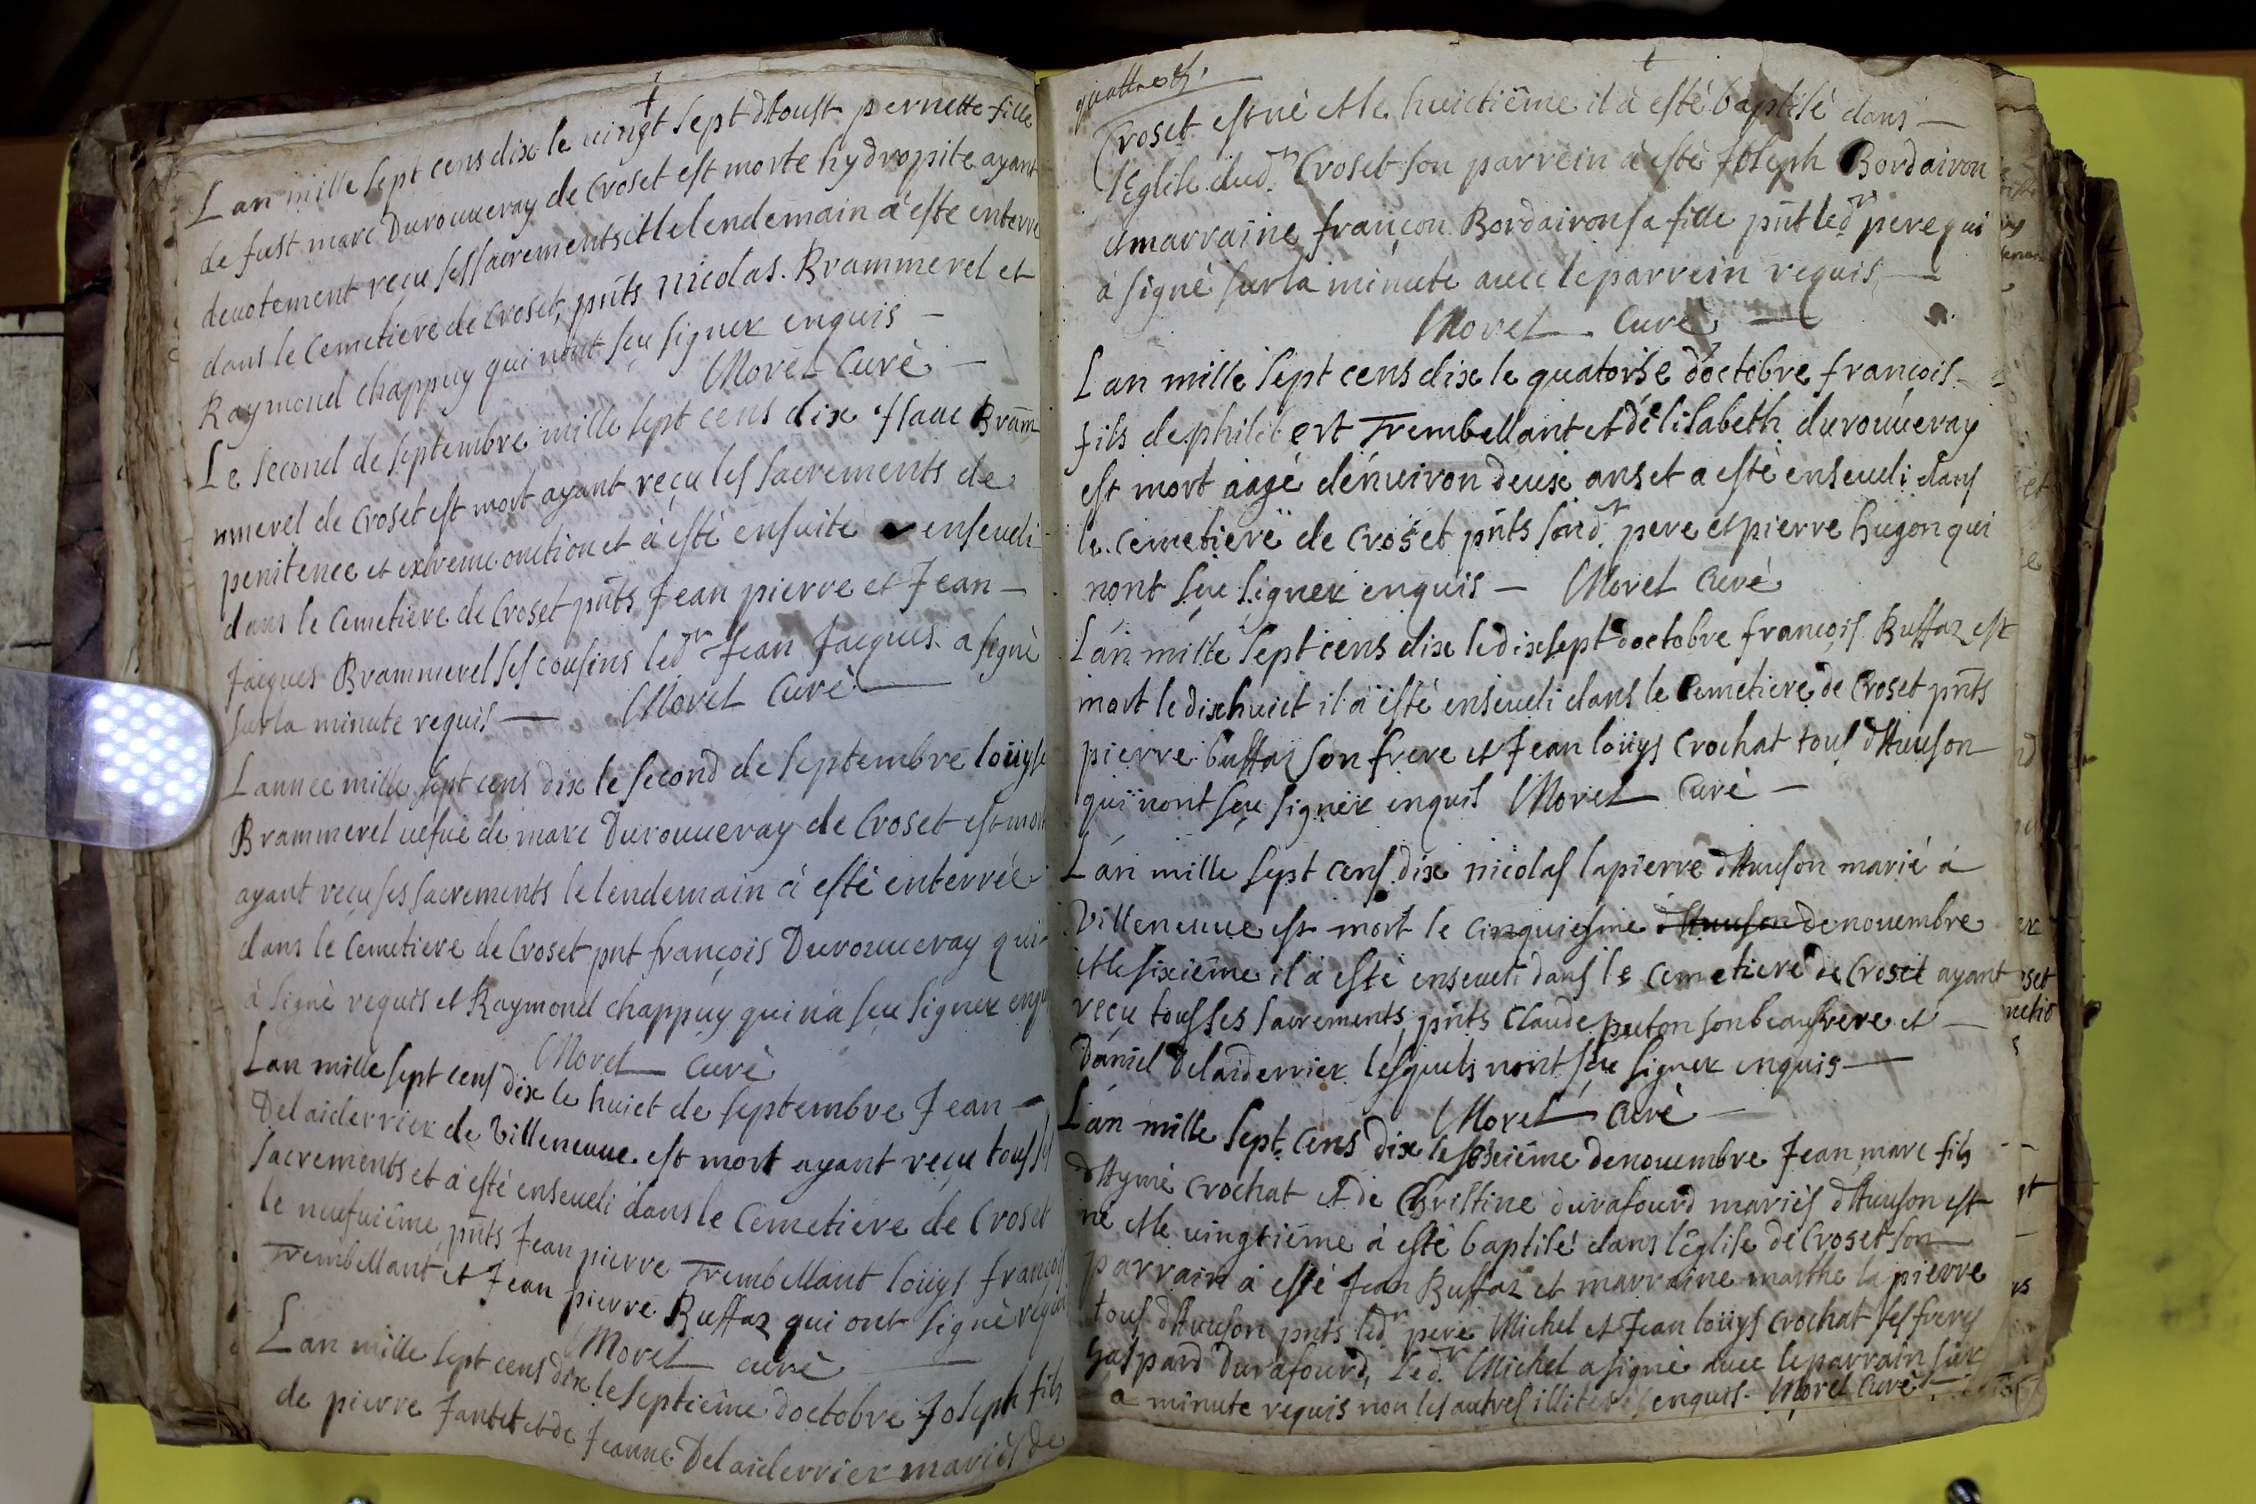 Lan mille sept cens dix le vingt sept d'Aoust pernette fille
de fust marc Durouueray de Croset est morte hydropite ayant
deuotement reçu ses sacrements et le lendemain à esté enterré
dans le Cemetiere de Croset, pnts Nicolas Brammerel et
Raymond Chappuy qui nont sçu signer enquis —
Morel Curé —
Le second de septembre mille sept cens dix Isaac Bram
mmerel de Croset est mort ayant reçu les sacrements de
penitence et extreme onction et à esté ensuite enseueli
dans le Cemetiere de Croset pnts Jean pierre et Jean —
Jacques Brammerel ses cousins led.r Jean Jacques a signé
sur la minute requis — Morel Curé —
Lannee mille sept cens dix le second de septembre loüyse
Brammerel uefue de marc Durouueray de Croset est mor
ayant reçu ses sacrements le lendemain à esté enterrée
dans le Cemetiere de Croset pnt françois Durouueray qui
à signé requis et Raymond chappuy qui n'a sçu signer enq
Morel Curé
Lan mille sept cens dix le huict de septembre Jean —
Delaiderrier de Villeneuue est mort ayant reçu tous ses
sacrements et à esté enseueli dans le Cemetiere de Croset
le neufuiême pnts Jean pierre Trembellant loüys françois
Trembellant et Jean pierre Buffaz qui ont signé requis
Morel curé —
Lan mille sept cens dix le septiême d'octobre Joseph fils
de pierre Jantet et de Jeanne Delaiderrier mariés de
Croset est né et le huictiême il à esté baptisé dans —
l'Eglise dud.r Croset son parrein à esté Joseph Bordairon
et marraine françon Bordairon sa fille pnt led.r pere qui
à signé sur la minute auec le parrein requis —
Morel Curé —
Lán mille sept cens dix le quatorse d'octobre françois
fils de philibert Trembellant et d'elisabeth durouueray
est mort aagé d'enuiron deux ans et a esté enseueli dans
le cemetiere de Croset pnts sond.r pere et pierre hugon qui
nont sçu signer enquis — Morel Curé
Lán mille sept cens dix le dixsept d'octobre françois Buffaz est
mort le dixhuict il à esté enseueli dans le Cemetiere de Croset pnts
pierre buffaz son frere et Jean loüys Crochat tous d'Auuson
qui nont sçu signer enquis Morel Curé —
Lán mille sept cens dix nicolas lapierre d'Auuson marié à
Villeneuue est mort le cinquiesme d'Auuson de nouembre
et le sixiême il à esté enseueli dans le Cemetiere de Croset ayant
reçu tous ses sacrements pnts Claude puton son beaufrere et —
Daniel Delaiderrier lesquels nont sçu signer enquis —
Morel Curé —
Lán mille sept cens dix le seiziême de nouembre Jean marc fils
d'Aymé Crochat et de Christine durafourd mariés d'Auuson est
né et le uingtiême à esté baptisé dans l'église de Croset son —
parrain à esté Jean Buffaz et marraine marthe lapierre
tous d'Auuson pnts led.r pere Michel et Jean loüys Crochat ses freres
Gaspard Durafourd, Led.r Michel a signé auec le parrain sur
a minute requis non les autres enquis. Morel Curé —